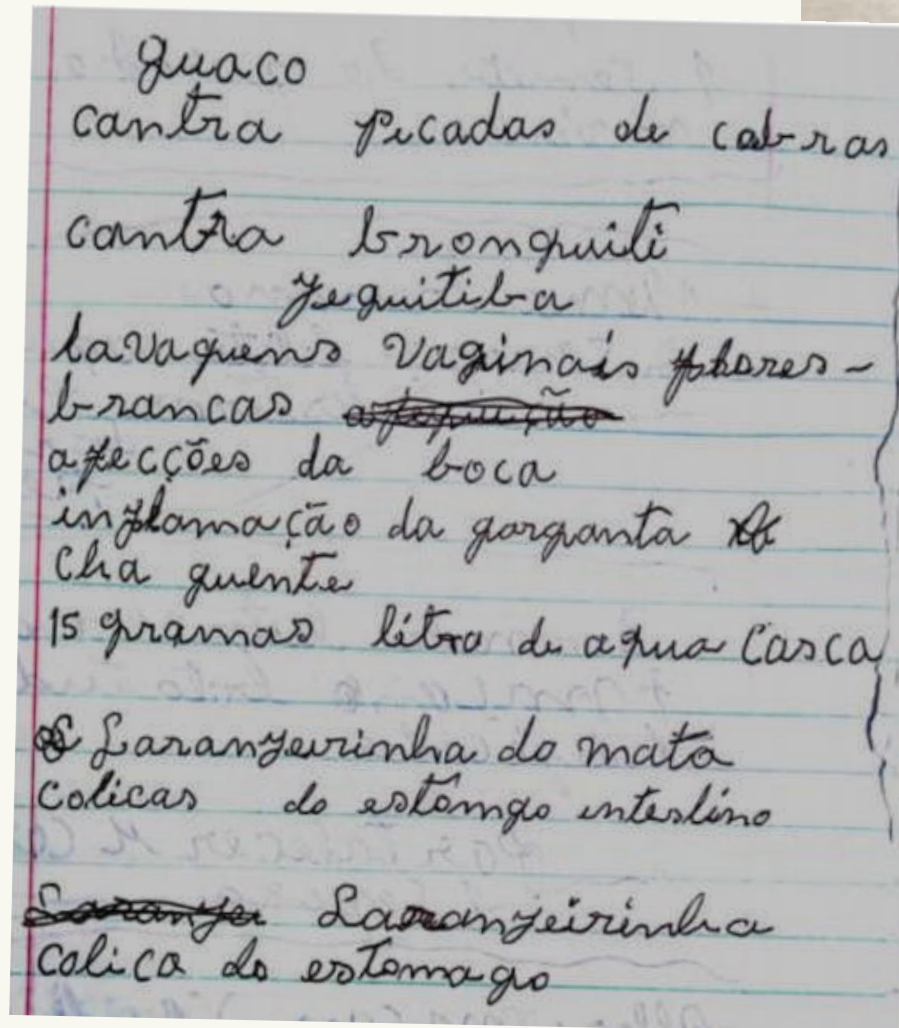 guaco
contra picadas de cobras
contra bronquiti
jequitiba
lavagens vaginais flores-
brancas
afecções da boca
inflamação da garganta
Cha quente
15 gramas litro de agua Casca
Laranjeirinha do mata
Colicas do estômgo intestino
Laranjeirinha
Colica do estomago